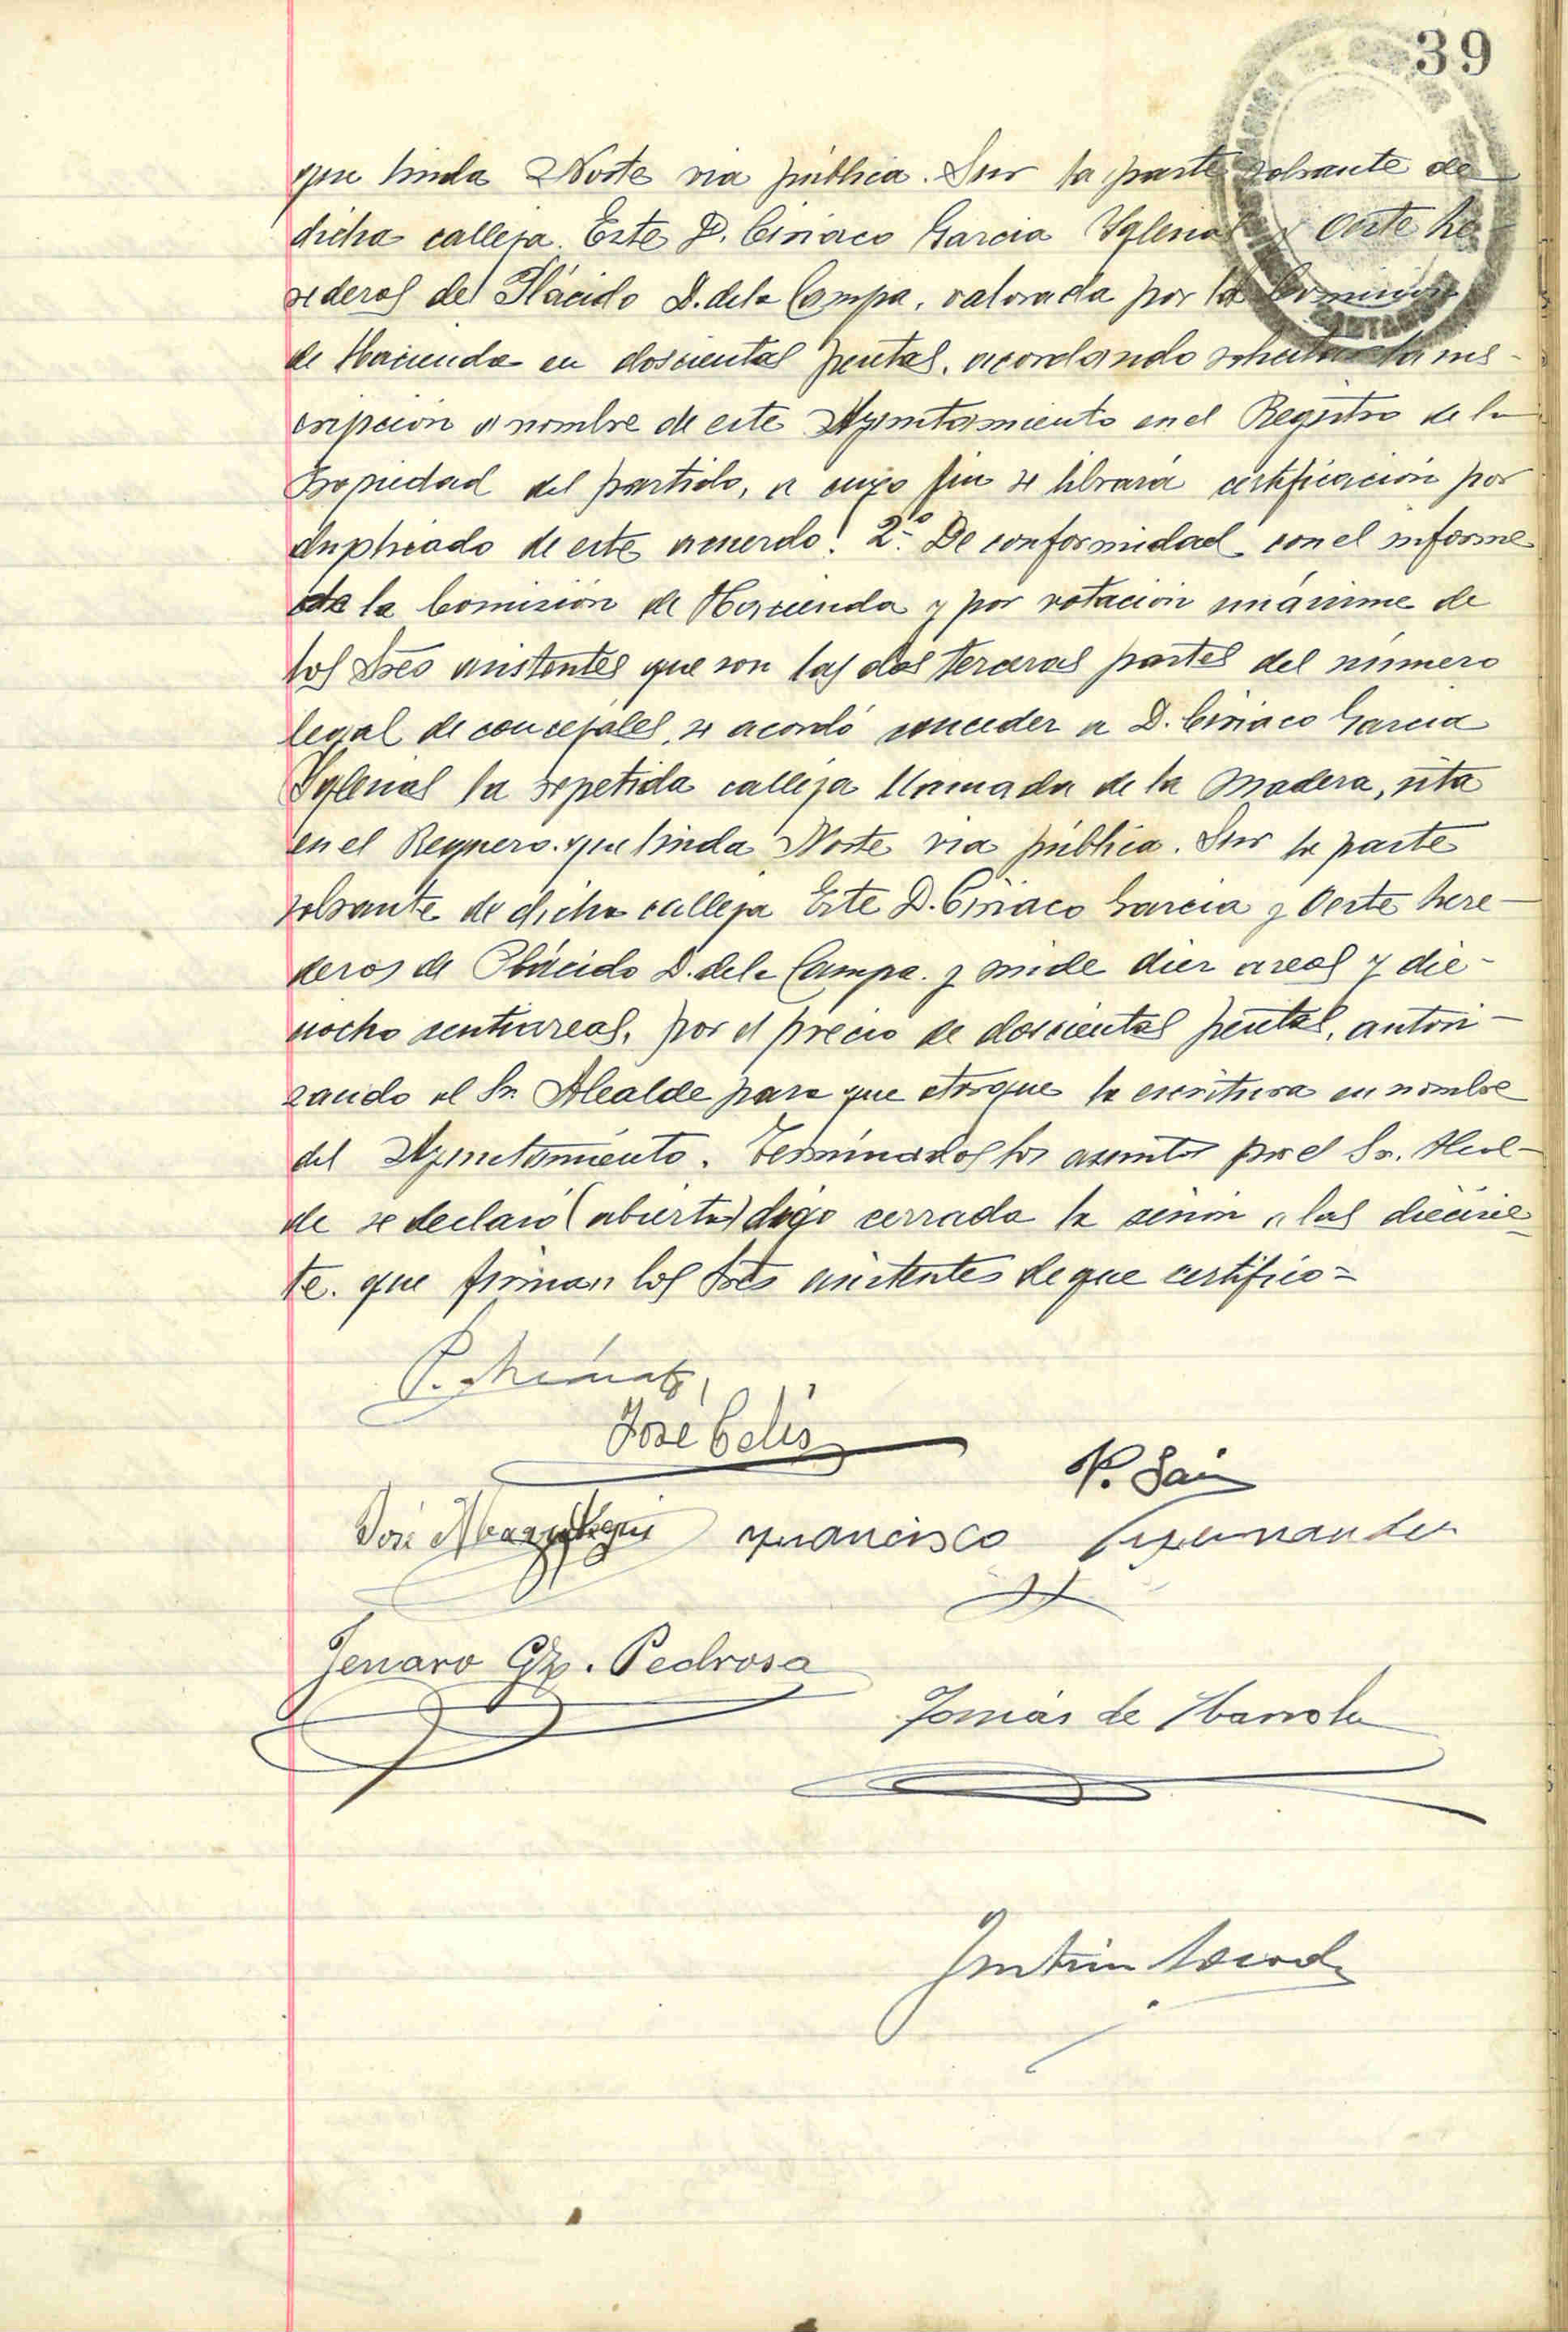 39
que linda Norte via pública. Sur la parte sobrante de
dicha calleja. Este D. Ciriaco Garcia Yglesias y Oeste he-
rederos de Plácido D. de la Campa, valorada por la Comisión
de Hacienda en doscientas pesetas, acordando solicitar la ins-
cripción a nombre de este Ayuntamiento en el Registro de la
Propiedad del partido, a cuyo fin se librará certificación por
duplicado de este acuerdo. 2.º De conformidad con el informe
de la Comisión de Hacienda y por votación unánime de
los Sres asistentes que son las dos terceras partes del número
legal de concejales, se acordó conceder a D. Ciriaco Garcia
Yglesias la repetida calleja llamada de la Madera, sita
en el Reguero. que linda Norte via pública. Sur la parte
sobrante de dicha calleja Este D. Ciriaco Garcia y Oeste here-
deros de Plácido D. de la Campa. y mide diez areas y die-
ciocho centiareas, por el precio de doscientas pesetas, autori-
zando al Sr. Alcalde para que otorgue la escritura en nombre
del Ayuntamiento. Terminados los asuntos por el Sr. Alcal-
de se declaró (abierta) digo cerrada la sesión a las diecisie-
te. que firman los Sres asistentes de que certifico=
José Celis
P. Sai
José Francisco Fernandez
Jenaro Gz. Pedrosa
Tomás de Ybarrola